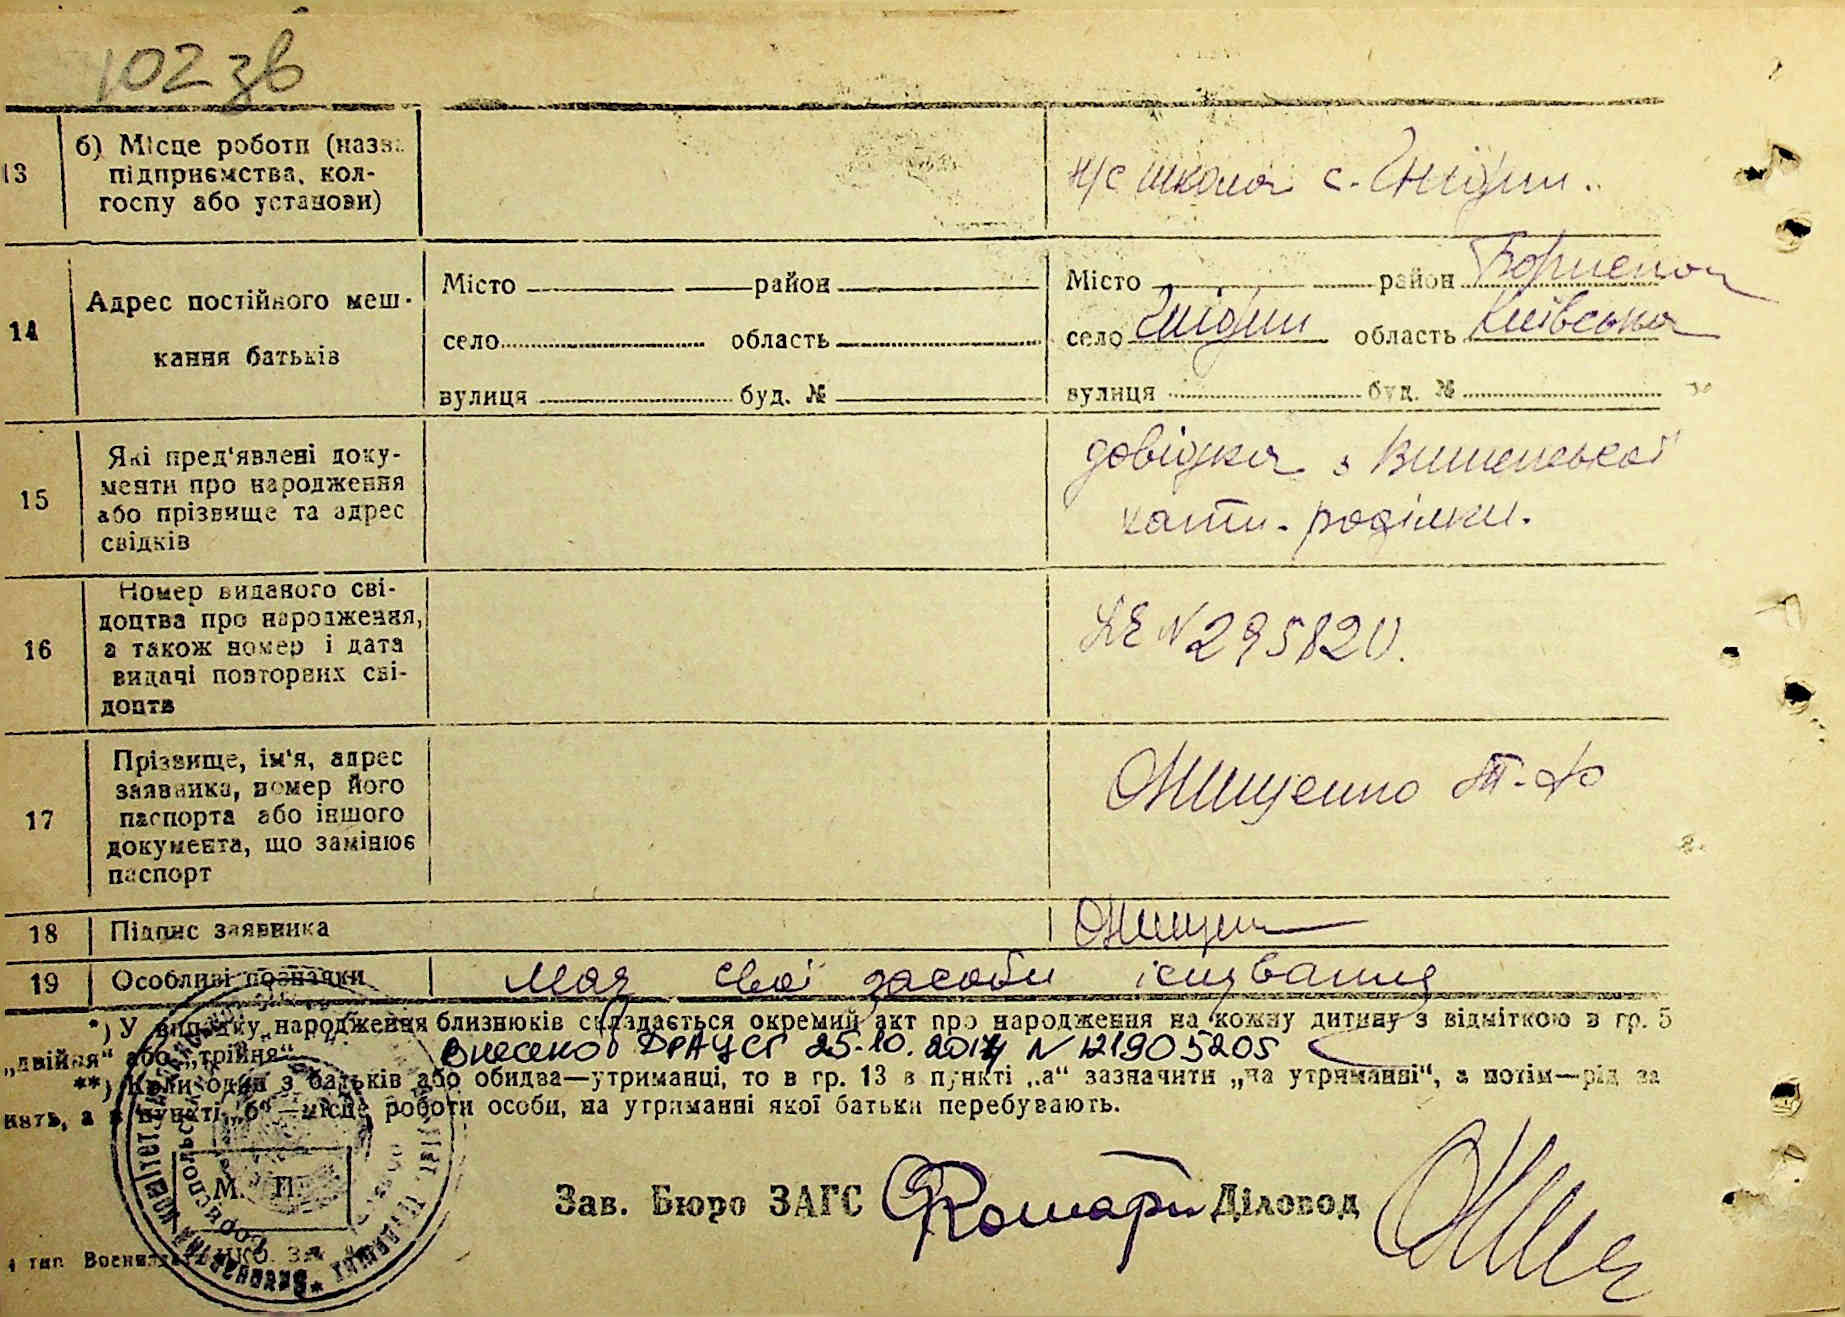 102 зв
13 б) Місце роботи (назва
підприємства, кол-
госпу або установи)
н/с школа с. Гнідин.
14 Адрес постійного меш-
кання батьків
Місто район
село область
вулиця буд. №
Місто район Бориспол
село Гнідин область Київська
вулиця буд. №
15 Які пред'явлені доку-
менти про народження
або прізвище та адрес
свідків
довідка з Вишеньської
хати-роділки.
16 Номер виданого сві-
доцтва про народження,
а також номер і дата
видачі повторних сві-
доцтв
№ 295820.
17 Прізвище, ім'я, адрес
заявника, номер його
паспорта або іншого
документа, що замінює
паспорт
Онищенко
18 Підпис заявника
19 Особливі познаки має свої засоби існування
*) У випадку народження близнюків складається окремий акт про народження на кожну дитину з відміткою в гр. 5
„двійня“ або „трійня“
Внесено ДРАЦСГ 25.10.2014 N 121905205
**) Коли один з батьків або обидва—утриманці, то в гр. 13 в пункті „а“ зазначити „на утриманні“, а потім—рід за
нять, а в пункті „б“—місце роботи особи, на утриманні якої батьки перебувають.
М. П.
Зав. Бюро ЗАГС Діловод